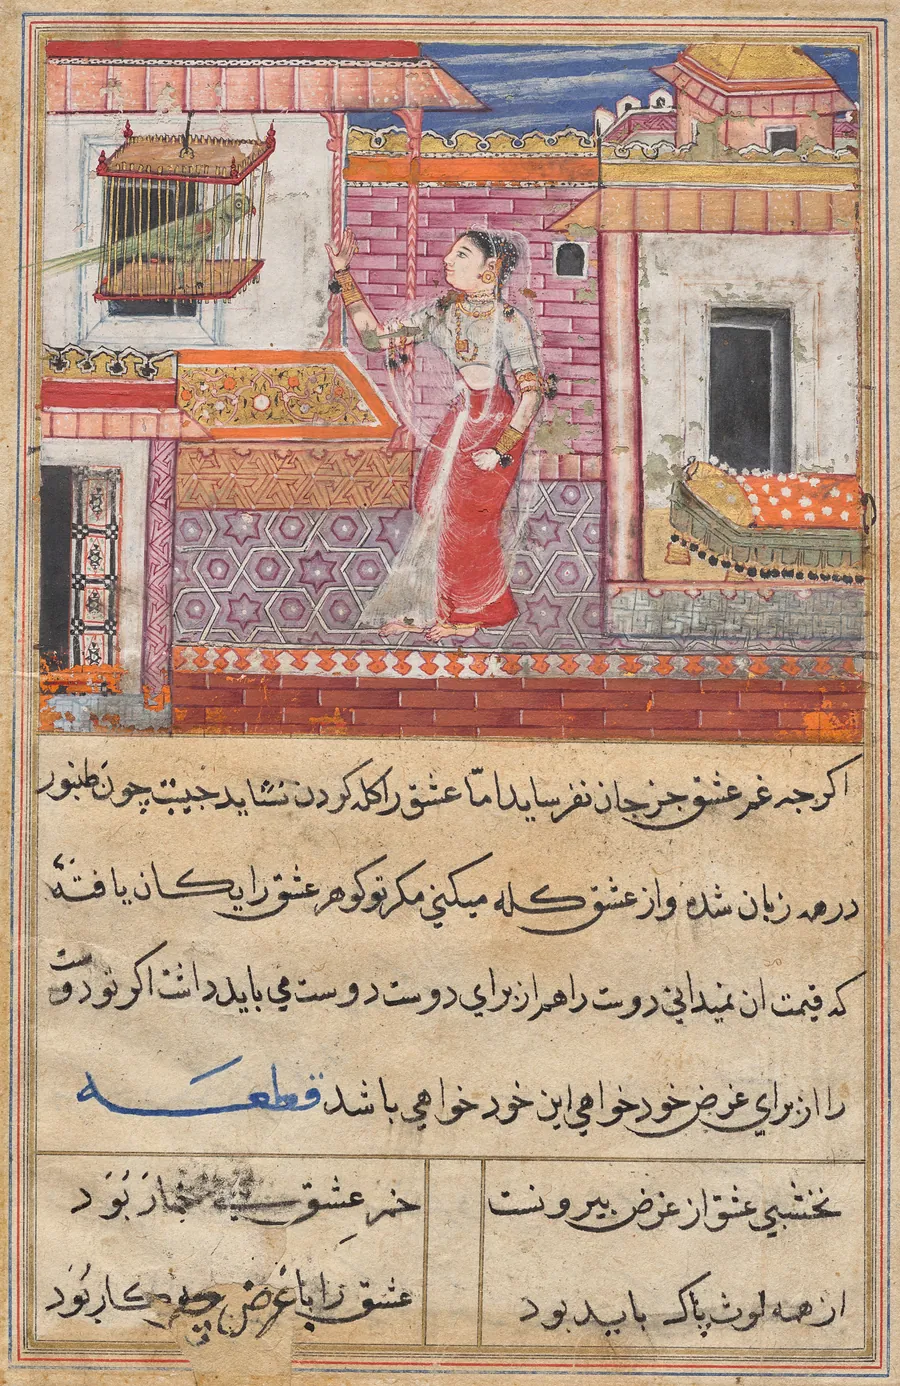 اکرچه غم عشق جز جان نفرساید امّا عشق را کله کردن نشاید چیست چون طنبور
در همه زبان شده و از عشق کله میکنی مکر تو کوهر عشق رایکان یافتهٔ
که قیمت ان نمیدانی دوست را هم از برای دوست دوست می باید داشت اکر تو دوست
را از برای غرض خود خواهی این خود خواهی باشد قطعه
نخشبی عشق از غرض بیرونست
خمر عشق بی خمار بُوَد
از همه لوث پاک باید بود
عشق را با غرض چه کار بُوَد